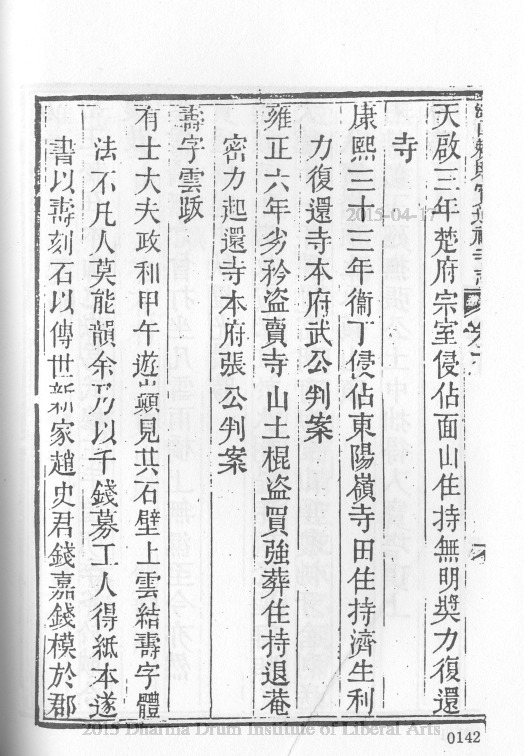 天啟三年楚府宗室侵佔面山住持無明奘力復還
寺
康熙三十三年衞丁侵佔東陽嶺寺田住持濟生利
力復還寺本府武公判案
雍正六年劣矜盜賣寺山土棍盜買強葬住持退菴
密力起還寺本府張公判案
壽字雲跋
有士大夫政和甲午遊山巔見其石壁上雲結壽字體
法不凡人莫能韻余乃以千錢募工人得紙本遂
書以壽刻石以傳世新家趙史君錢嘉錢模於郡
2015-04-17
2015 Dharma Drum Institute of Liberal Arts
0142